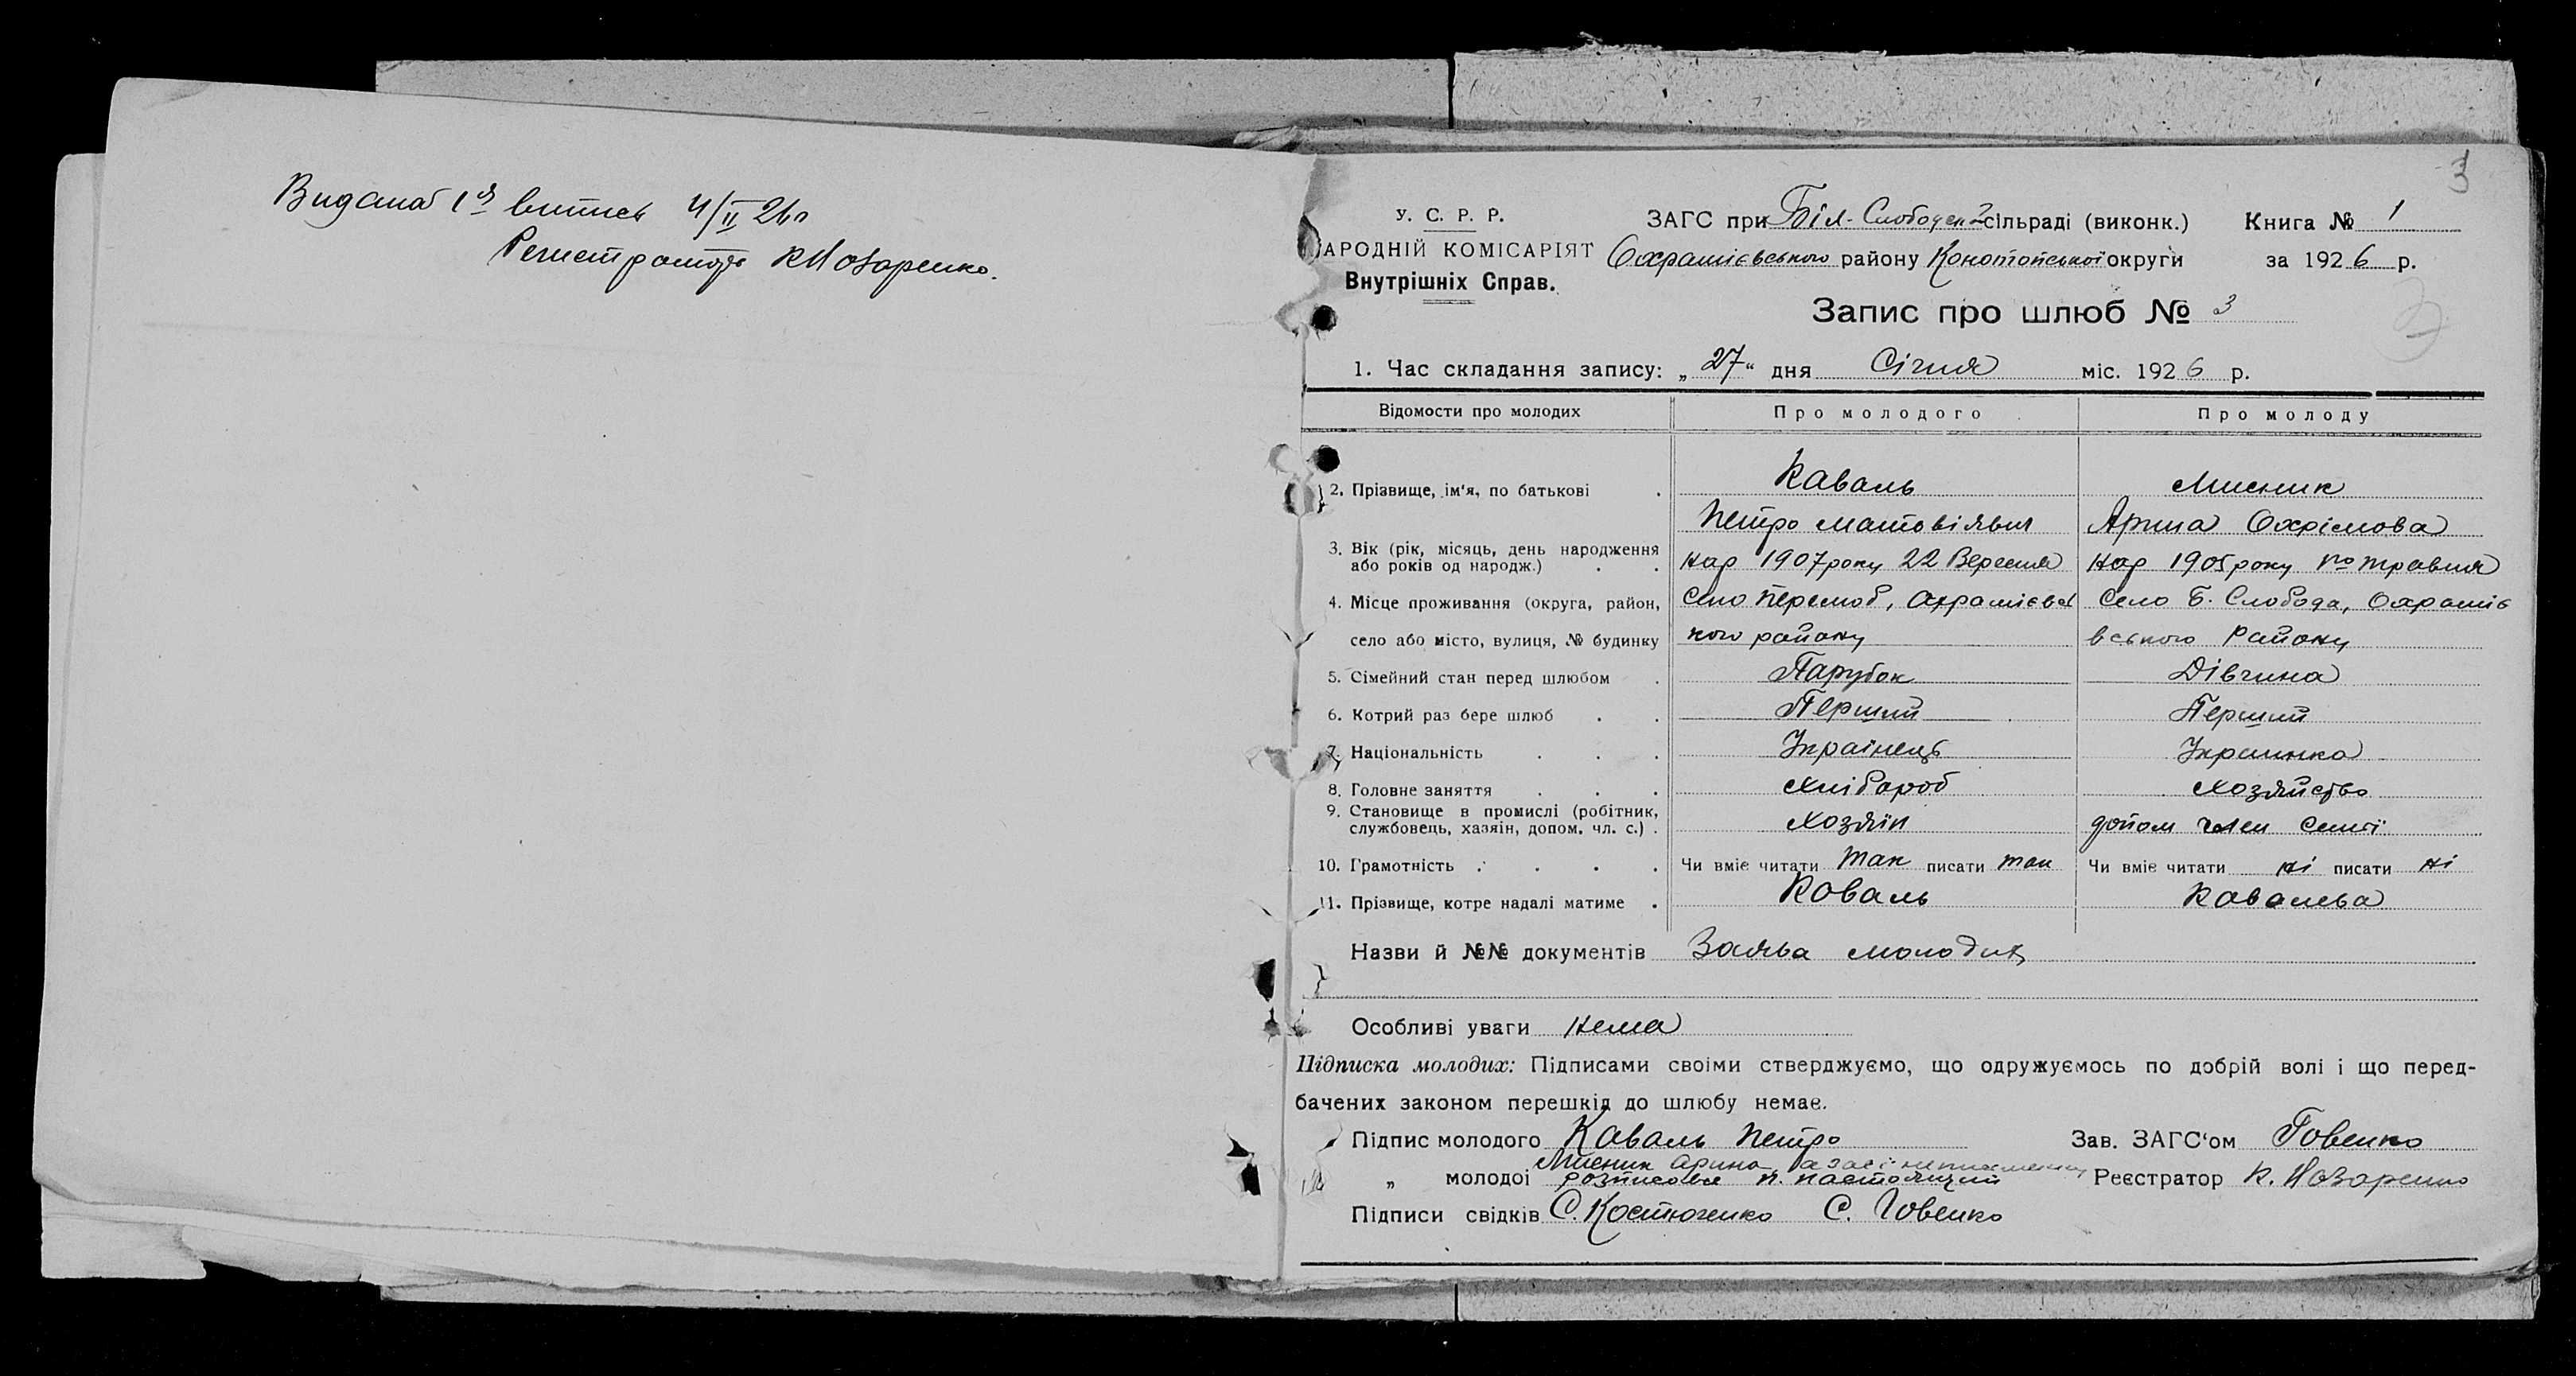 Видана 1я витись 4/II 26р
Регистратор К Назаренко.
3
У. С. Р. Р.
ЗАГС при Біл-Слободск 2 сільраді (виконк.) Книга № 1
НАРОДНІЙ КОМІСАРІЯТ
Охрамієвського району Конотопської округи за 1926 р.
Внутрішніх Справ.
Запис про шлюб № 3
1. Час складання запису: „27“ дня Січня міс. 1926 р.
Відомости про молодих Про молодого Про молоду
2. Прізвище, ім'я, по батькові . Каваль Мисник
Петро Матовіявич Арина Охрімова
3. Вік (рік, місяць, день народження
або років од народж.) . . нар 1907 року 22 Вересня нар 1905 року травня
4. Місце проживання (округа, район, Село Перемоб, Охрамієвсь Село Б. Слобода, Охраміє
село або місто, вулиця, № будинку кого району вського Району
5. Сімейний стан перед шлюбом . Парубок Дівчина
6. Котрий раз бере шлюб . . Перший Перший
7. Національність . . . Українець Украинка
8. Головне заняття . . . хлібароб хозяйство
9. Становище в промислі (робітник,
службовець, хазяін, допом. чл. с.) . хозяін допом член семї
10. Грамотність . . . . Чи вміє читати так писати так Чи вміє читати ні писати ні
11. Прізвище, котре надалі матиме . Коваль Кавалева
Назви й №№ документів Заява молодих
Особливі уваги нема
Підписка молодих: Підписами своіми стверджуємо, що одружуємось по добрій волі і що перед-
бачених законом перешкід до шлюбу немає.
Підпис молодого Каваль Петро Зав. ЗАГС'ом Говенко
Мисник Арина а за її неписменну
„ молодоі розписався П. Реєстратор К. Назаренко
Підписи свідків С. Костюченко С. Говенко